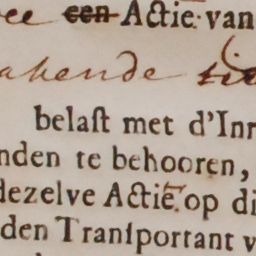 ee een Actie van
akende
belast met d'Inr
nden te behooren,
dezelve Actie op di
den Transportant v